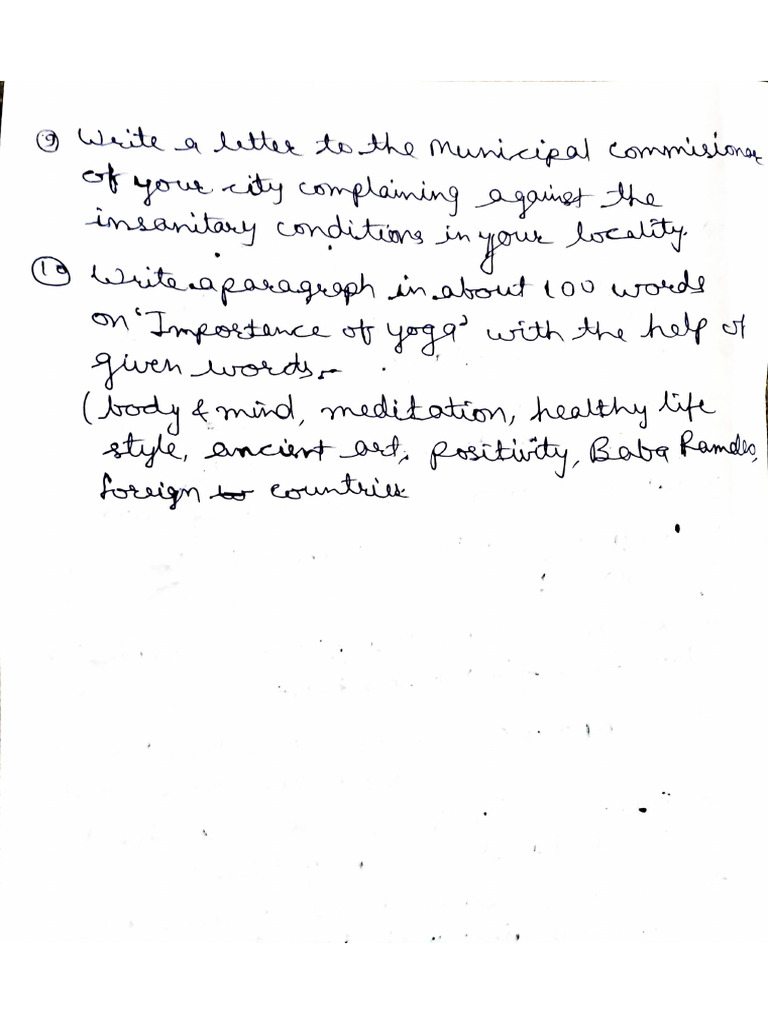 ⑨ Write a letter to the Municipal Commisioner
of your city complaining against the
insanitary conditions in your locality.
⑩ Write a paragraph in about 100 words
on 'Importance of yoga' with the help of
given words.-
(body & mind, meditation, healthy life
style, ancient art, positivity, Baba Ramdev,
foreign to countries